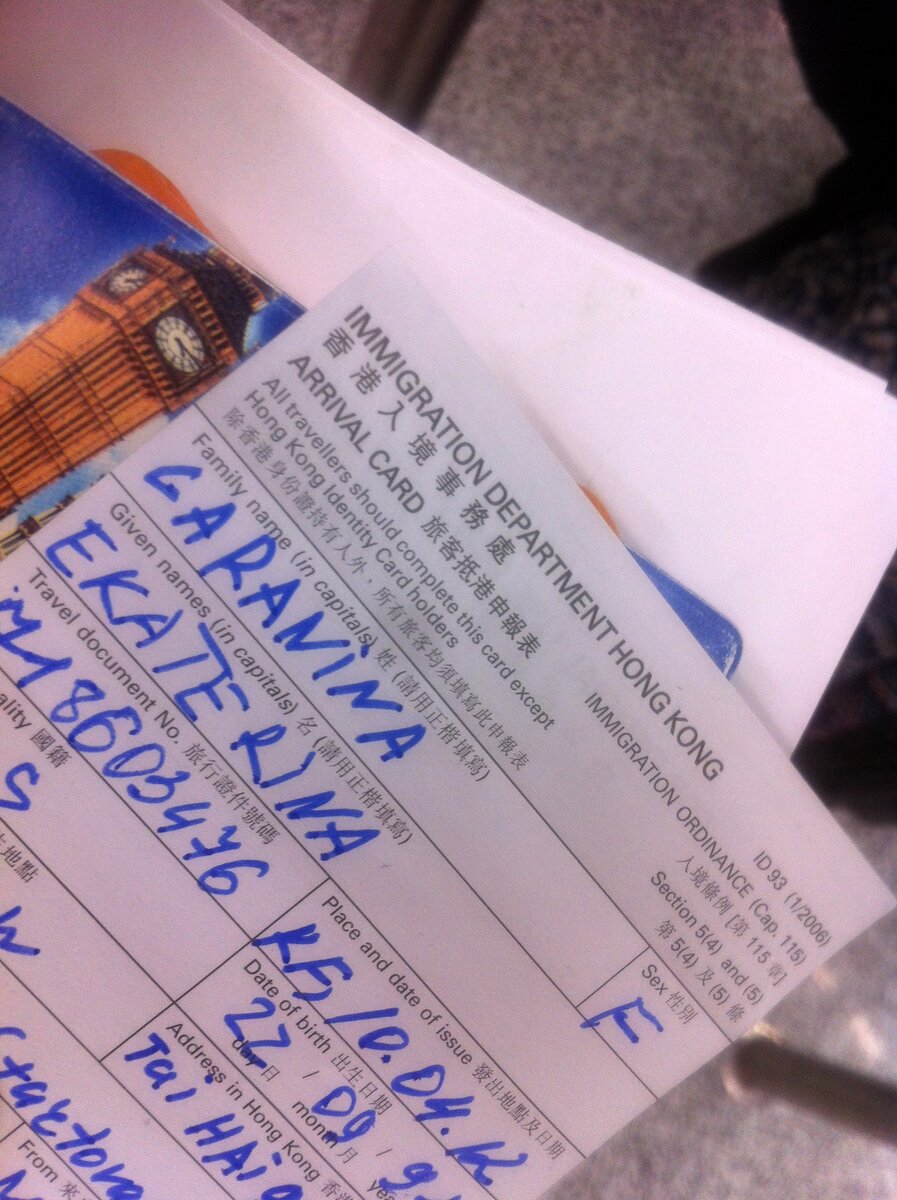 IMMIGRATION DEPARTMENT HONG KONG
香港入境事務處
ARRIVAL CARD 旅客抵港申報表
All travellers should complete this card except
Hong Kong Identity Card holders
除香港身份證持有人外，所有旅客均須填寫此申報表
ID 93 (1/2006)
IMMIGRATION ORDINANCE (Cap. 115)
入境條例 [第 115 章]
Section 5(4) and (5)
第 5(4) 及 (5) 條
Family name (in capitals) 姓 (請用正楷填寫)
Sex 性別
GARANINA
F
Given names (in capitals) 名 (請用正楷填寫)
EKATERINA
Travel document No. 旅行證件號碼
Place and date of issue 發出地點及日期
8603476
RF 10.04.
國籍
Date of birth 出生日期
22 / 09 /
day 日
month 月
地點
Address in Hong Kong
Tai
From